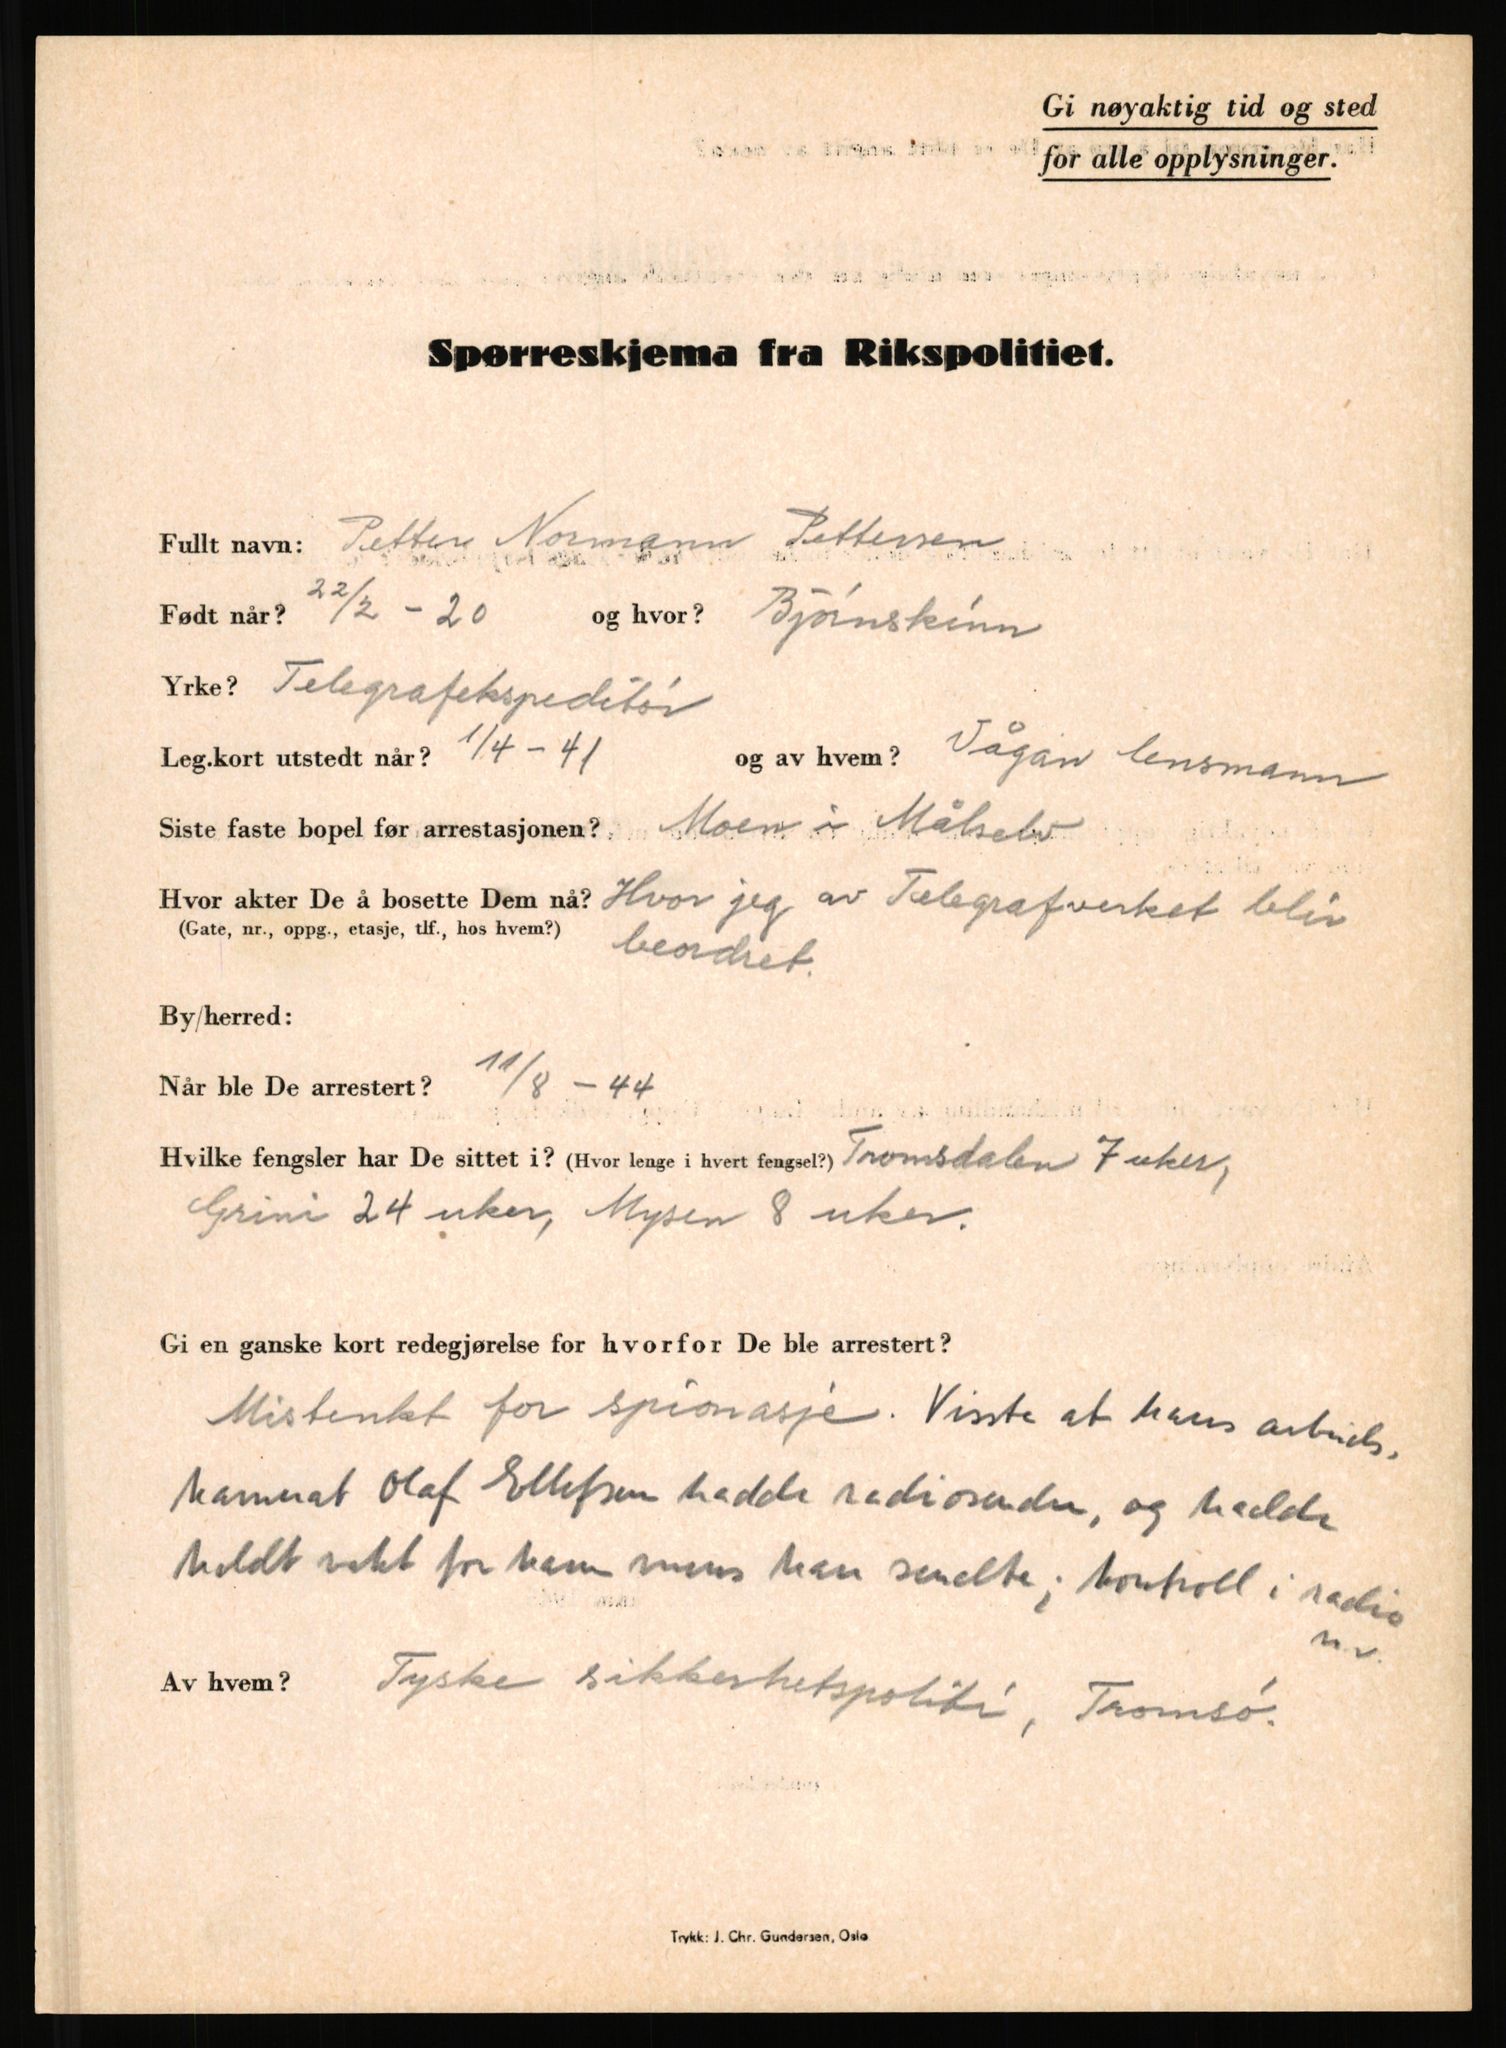 Gi nøyaktig tid og sted
for alle opplysninger.
Spørreskjema fra Rikspolitiet.
Fullt navn: Petter Normann Pettersen
Født når? 22/2 - 20 og hvor? Bjørnskinn
Yrke? Telegrafekspeditør
Leg.kort utstedt når? 1/4 - 41 og av hvem? Vågan lensmann
Siste faste bopel før arrestasjonen? Moen i Målselv
Hvor akter De å bosette Dem nå? Hvor jeg av Telegrafverket blir
(Gate, nr., oppg., etasje, tlf., hos hvem?) beordret.
By/herred:
Når ble De arrestert? 11/8 - 44
Hvilke fengsler har De sittet i? (Hvor lenge i hvert fengsel?) Tromsdalen 7 uker,
Grini 24 uker, Mysen 8 uker.
Gi en ganske kort redegjørelse for hvorfor De ble arrestert?
Mistenkt for spionasje. Visste at hans arbeids-
kamerat Olaf Ellefsen hadde radiosender, og hadde
holdt vakt for ham mens han sendte; kontroll i radio
Av hvem? Tyske sikkerhetspoliti, Tromsø.
Trykk: J. Chr. Gundersen, Oslo